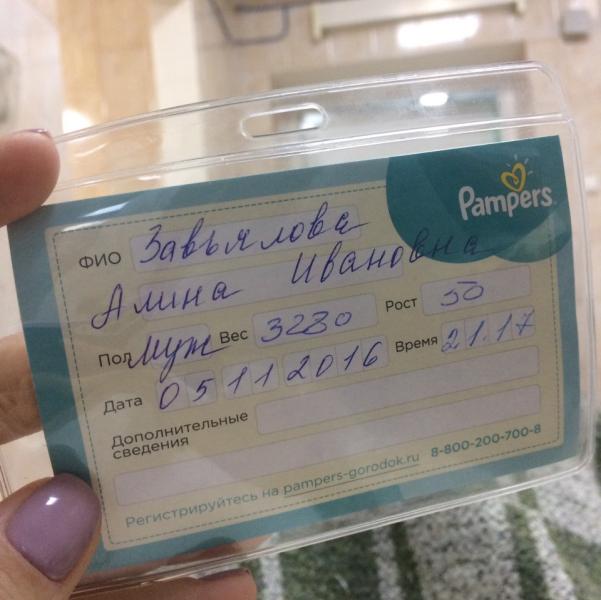 Pampers
ФИО Завьялова
Алина Ивановна
Пол Муж Вес 3280 Рост 50
Дата 05 11 2016 Время 21.17
Дополнительные
сведения
Регистрируйтесь на pampers-gorodok.ru 8-800-200-700-8